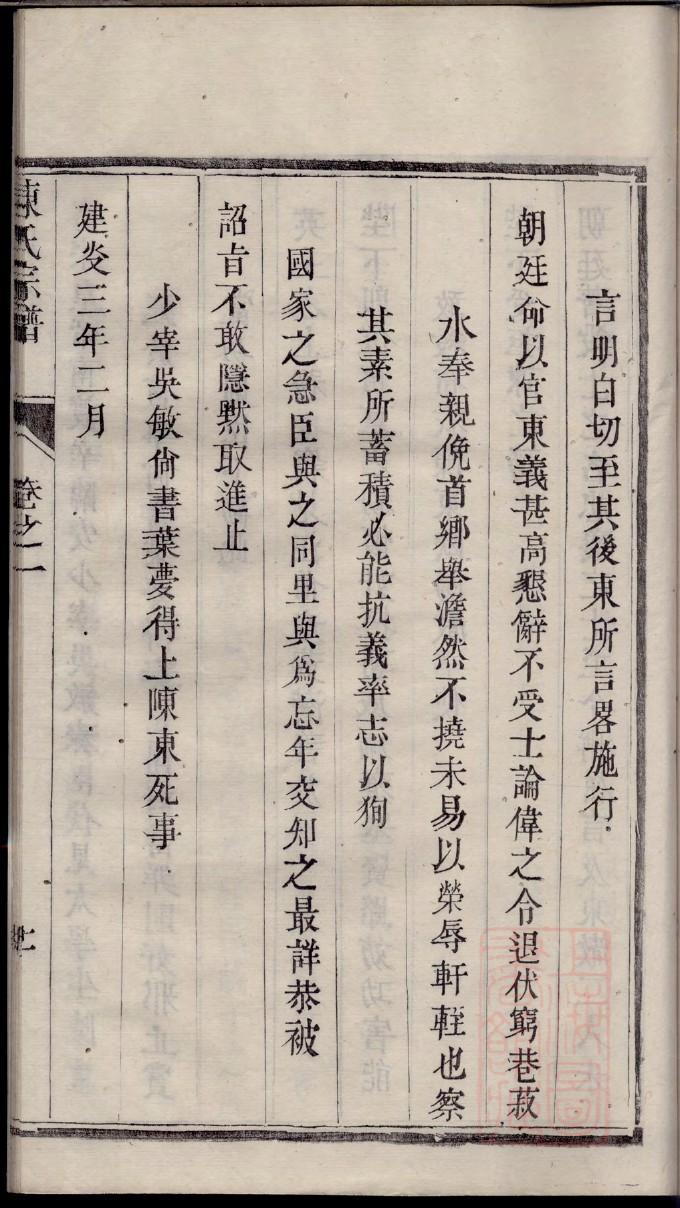 言明白切至其後東所言畧施行
朝廷命以官東義甚高懇辭不受士論偉之今退伏窮巷菽
水奉親俛首鄉舉澹然不撓未易以榮辱軒輊也察
其素所蓄積必能抗義率志以狥
國家之急臣與之同里與爲忘年交知之最詳恭被
詔旨不敢隱黙取進止
少宰吳敏尙書葉夢得上陳東死事
建炎三年二月
陳氏宗譜
卷之一